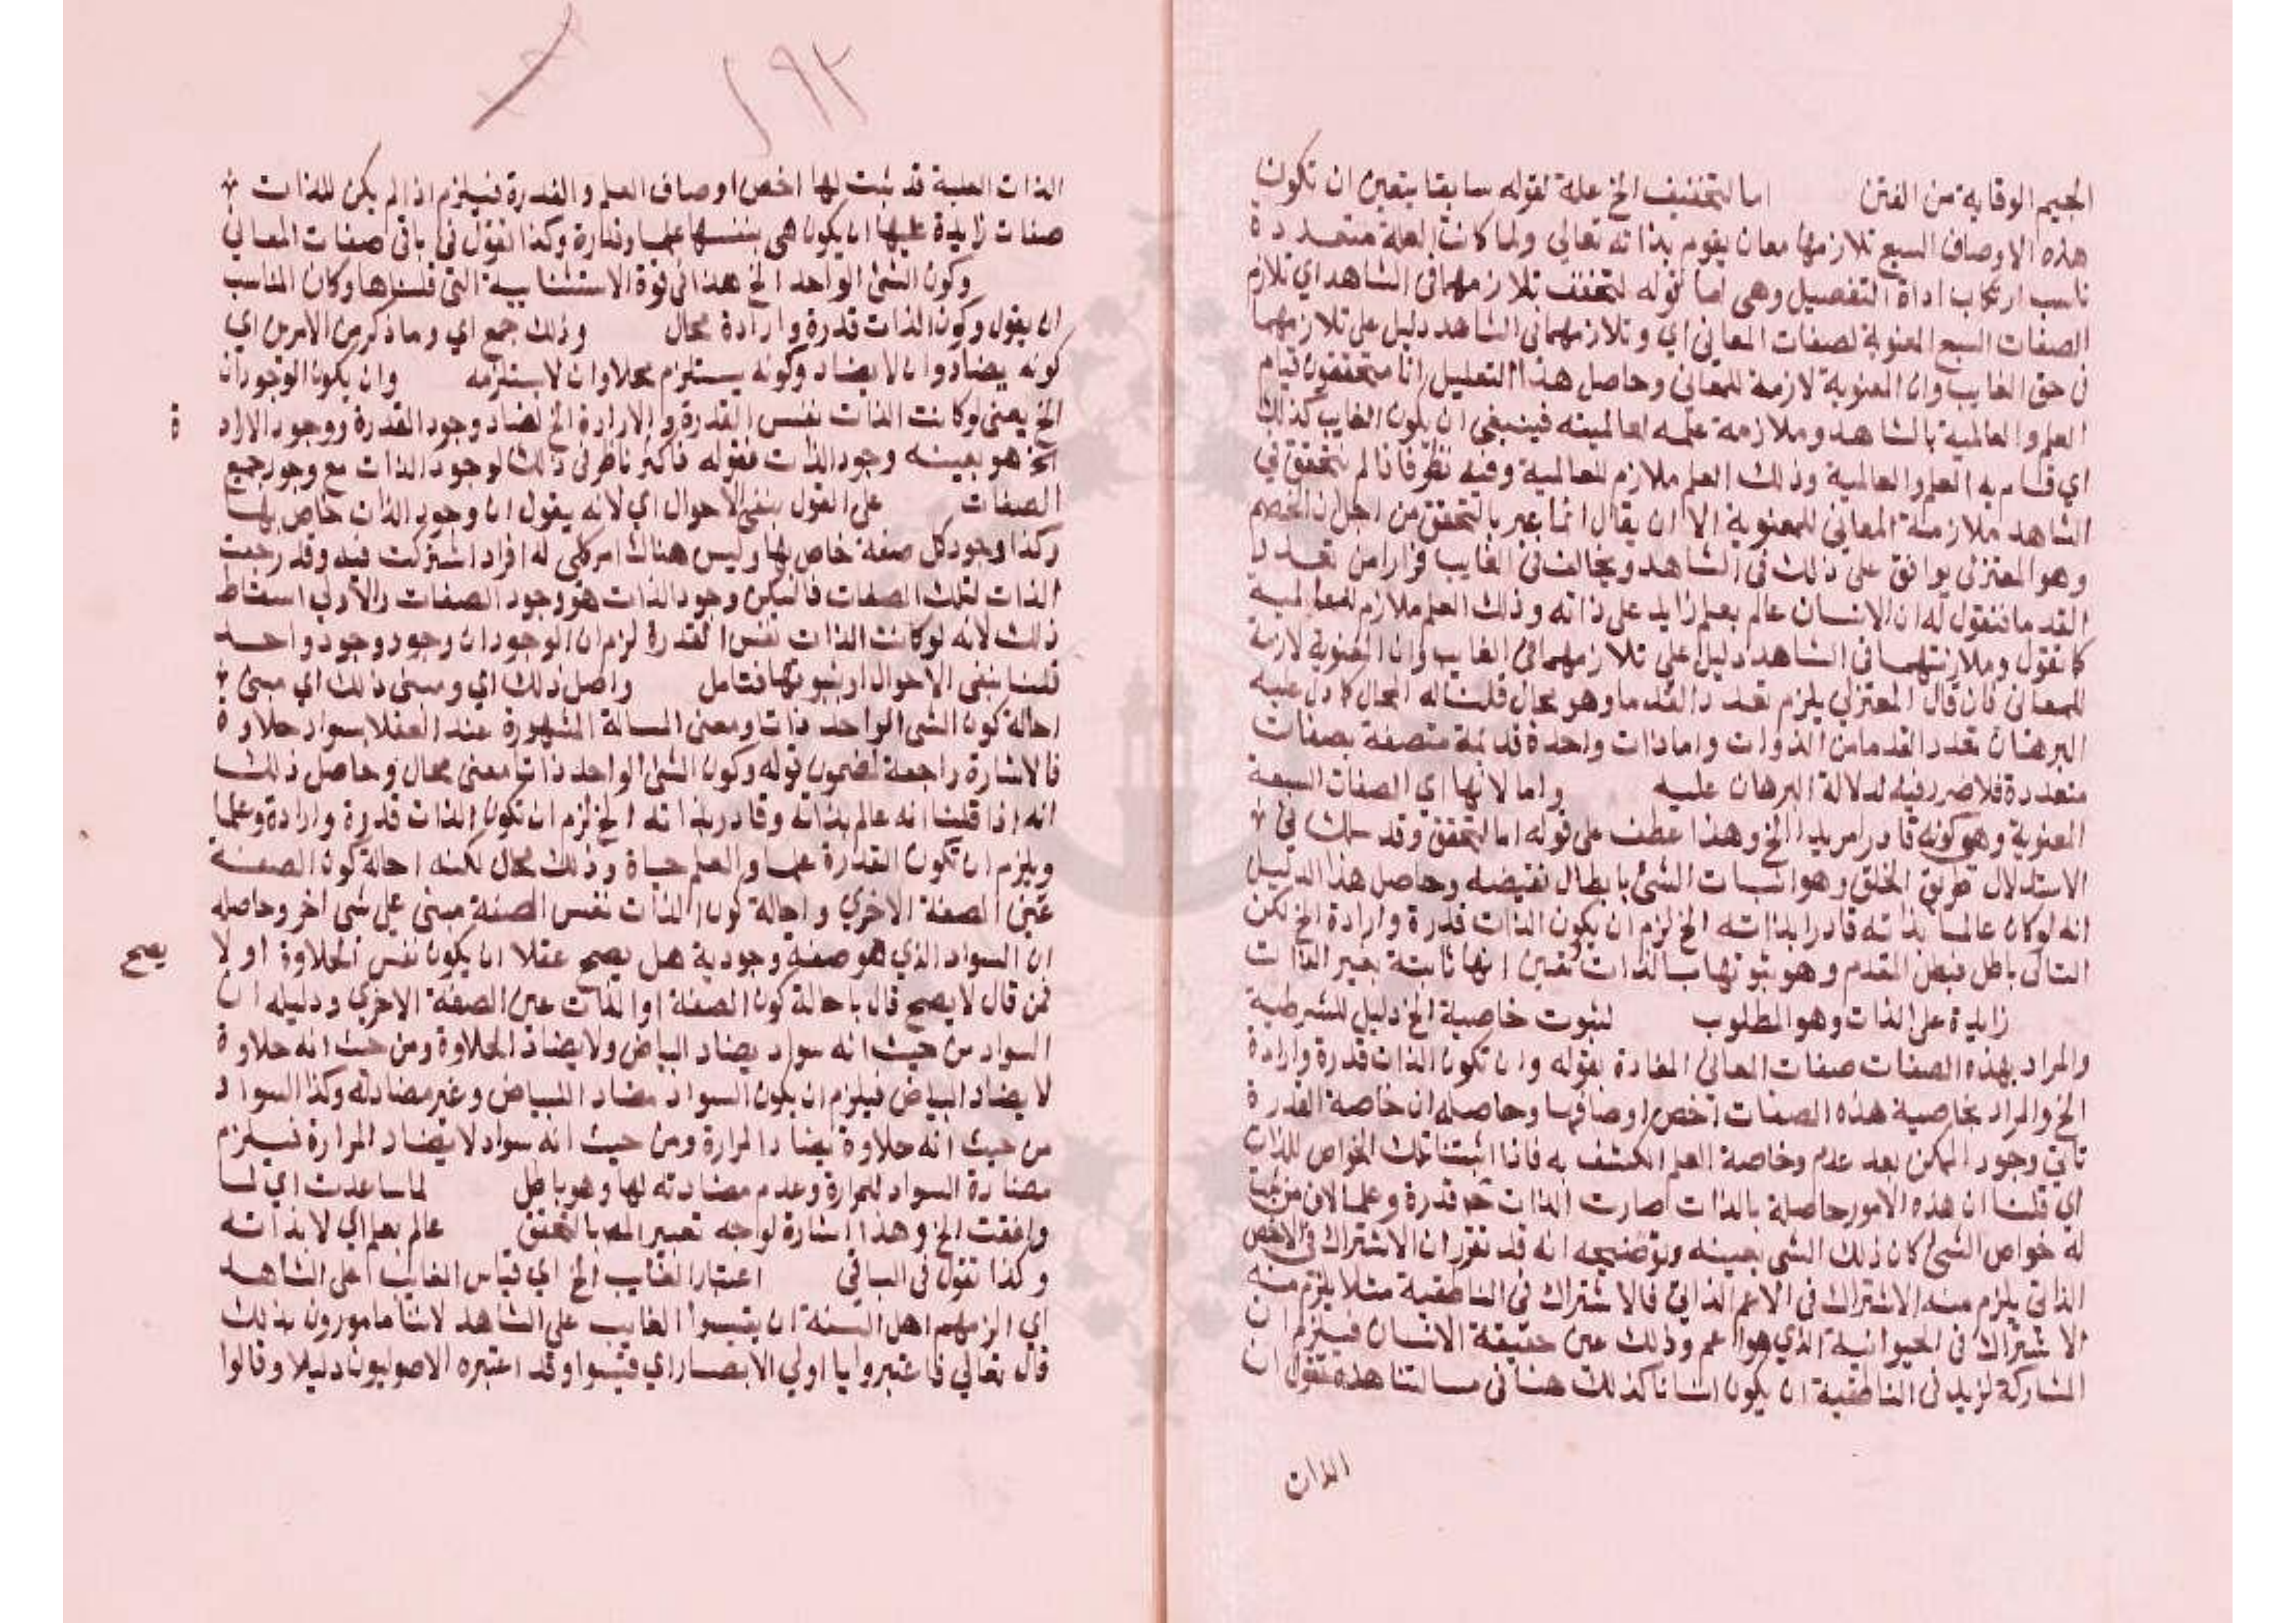 الجيم الوقاية من الفتن اما لتحقيق الخ علة لقوله سابقا يتعين ان تكون
هذه الاوصاف السبع تلازمها معان يقوم بذاته تعالي ولما كانت العلة متعددة
ناسب ارتكاب اداة التفصيل وهي اما قوله لتحقق تلازمهما في الشاهد اي تلازم
الصفات السبع المعنوية لصفات المعاني اي وتلازمهما في الشاهد دليل على تلازمهما
في حق الغايب وان المعنوية لازمة للمعاني وحاصل هذا التعليل انا متحققون قيام
العلم والعالمية بالشاهد وملازمة علمه لعالميته فينبغي ان يكون الغايب كذلك
اي قام به العلم والعالمية وذلك العلم ملازم للعالمية وفيه نظر فانا لم نتحقق في
الشاهد ملازمة المعاني للمعنوية الا ان يقال انما عبر بالتحقق من اجل ان الخصم
وهو المعتزلي يوافق على ذلك في الشاهد ويخالف في الغايب فرارا من تعدد
القدما فنقول له ان الانسان عالم بعلم زايد على ذاته وذلك العلم ملازم للعالمية
كما تقول وملازمتهما في الشاهد دليل على تلازمهما في الغايب وان المعنوية لازمة
للمعاني فان قال المعتزلي يلزم تعدد القدما وهو محال قلنا له المحال كما دل عليه
البرهان تعدد القدما من الذوات واما ذات واحدة قديمة متصفة بصفات
متعددة فلا ضرر فيه لدلالة البرهان عليه واما لانها اي الصفات السبعة
المعنوية وهو كونه قادرا مريدا الخ وهذا عطف على قوله اما لتحقق وقد سلك في
الاستدلال طريق الخلق وهو اثبات الشئ بابطال نقيضه وحاصل هذا الدليل
انه لوكان عالما بذاته قادرا بذاته الخ لزم ان يكون الذات قدرة وارادة الخ لكن
التالي باطل فبطل المقدم وهو ثبوتها بالذات تعين انها ثابتة بغير الذات
زايدة على الذات وهو المطلوب لثبوت خاصية الخ دليل للشرطية
والمراد بهذه الصفات صفات المعاني المفادة بقوله وان تكون الذات قدرة وارادة
الخ والمراد بخاصية هذه الصفات اخص اوصافها وحاصله ان خاصة القدرة
تاتي وجود الممكن بعد عدم وخاصة العلم الكشف به فاذا اثبتنا تلك الخواص للذات
اي قلنا ان هذه الامور حاصلة بالذات صارت الذات قدرة وعلما لان من ثبت
له خواص الشئ كان ذلك الشي بعينه وتوضيحه انه قد تقرر ان الاشتراك في الاخص
الذاتي يلزم منه الاشتراك في الاعم الذاتي فالاشتراك في الناطقية مثلا يلزم منه
الاشتراك في الحيوانية الذي هو اعم وذلك عين حقيقة الانسان فيلزم ان
المشاركة لزيد في الناطقية ان يكون انسانا كذلك هنا في مسالتنا هذه نقول ان
الذات
١٩٢
الذات العلية قد ثبت لها اخص اوصاف العلم والقدرة فيلزم اذا لم يكن للذات
صفات زايدة عليها ان يكون هي بنفسها علما وقدارة وكذا القول في باقي صفات المعاني
وكون الشئ الواحد الخ هذا في قوة الاستثنائية التي قلناها وكان المناسب
ان يقول وكون الذات قدرة وارادة محال وذلك جمع اي وما ذكر من الامرين اي
كونه يضاد وان لا يضاد وكونه يستلزم محلا وان لا يستلزمه وان يكون الوجودان
الخ يعني وكانت الذات نفس القدرة والارادة الخ لضاد وجود القدرة ووجود الاراد
ة
الخ هو بعينه وجود الذات فقوله ذلك لوجود الذات مع وجود جميع
الصفات على القول بنفي الاحوال اي لانه يقول ان وجود الذات خاص بها
وكذا وجود كل صفة خاص بها وليس هناك امر كلي له افراد اشتركت فيه وقد رجعت
الذات لتلك الصفات فليكن وجود الذات هو وجود الصفات والاولي اسقاط
ذلك لانه لو كانت الذات نفس القدرة لزم ان الوجودان وجود وجود واحد
قلنا بنفي الاحوال او ثبوتها فتامل واصل ذلك اي ومبني ذلك اي مبني
احالة كون الشي الواحد ذات ومعني المسالة المشهورة عند العقلا سواد حلاوة
فالاشارة راجعة لمضمون قوله وكون الشئ الواحد ذاتا معني محال وحاصل ذلك
انه اذا قلنا انه عالم بذاته وقادر بذاته الخ لزم ان تكون الذات قدرة وارادة وعلما
ويلزم ان تكون القدرة علما والعلم حياة وذلك محال لكنه احالة كون الصفة
عين الصفة الاخري واحالة كون الذات نفس الصفة مبني على شي اخر وحاصله
ان السواد الذي هو صفة وجودية هل يصح عقلا ان يكون نفس الحلاوة او لا
يصح
فمن قال لا يصح قال باحالة كون الصفة او الذات عين الصفة الاخري ودليله ان
السواد من حيث انه سواد يضاد البياض ولا يضاد الحلاوة ومن حيث انه حلاوة
لا يضاد البياض فيلزم ان يكون السواد مضاد للبياض وغير مضاد له وكذا السواد
من حيث انه حلاوة يضاد المرارة ومن حيث انه سواد لا يضاد المرارة فيلزم
مضادة السواد للمرارة وعدم مضادته لها وهو باطل لما ساعدت اي لما
وافقت الخ وهذا اشارة لوجه تعبير المص بالتحقق عالم بعلم اي لا بذاته
وكذا تقول في الباقي اعتبار الغايب الخ اي قياس الغايب على الشاهد
اي الزمهم اهل السنة ان يقيسوا الغايب على الشاهد لاننا مامورون بذلك
قال تعالي فاعتبروا يا اولي الابصار اي قيسوا وقد اعتبره الاصوليون دليلا وقالوا